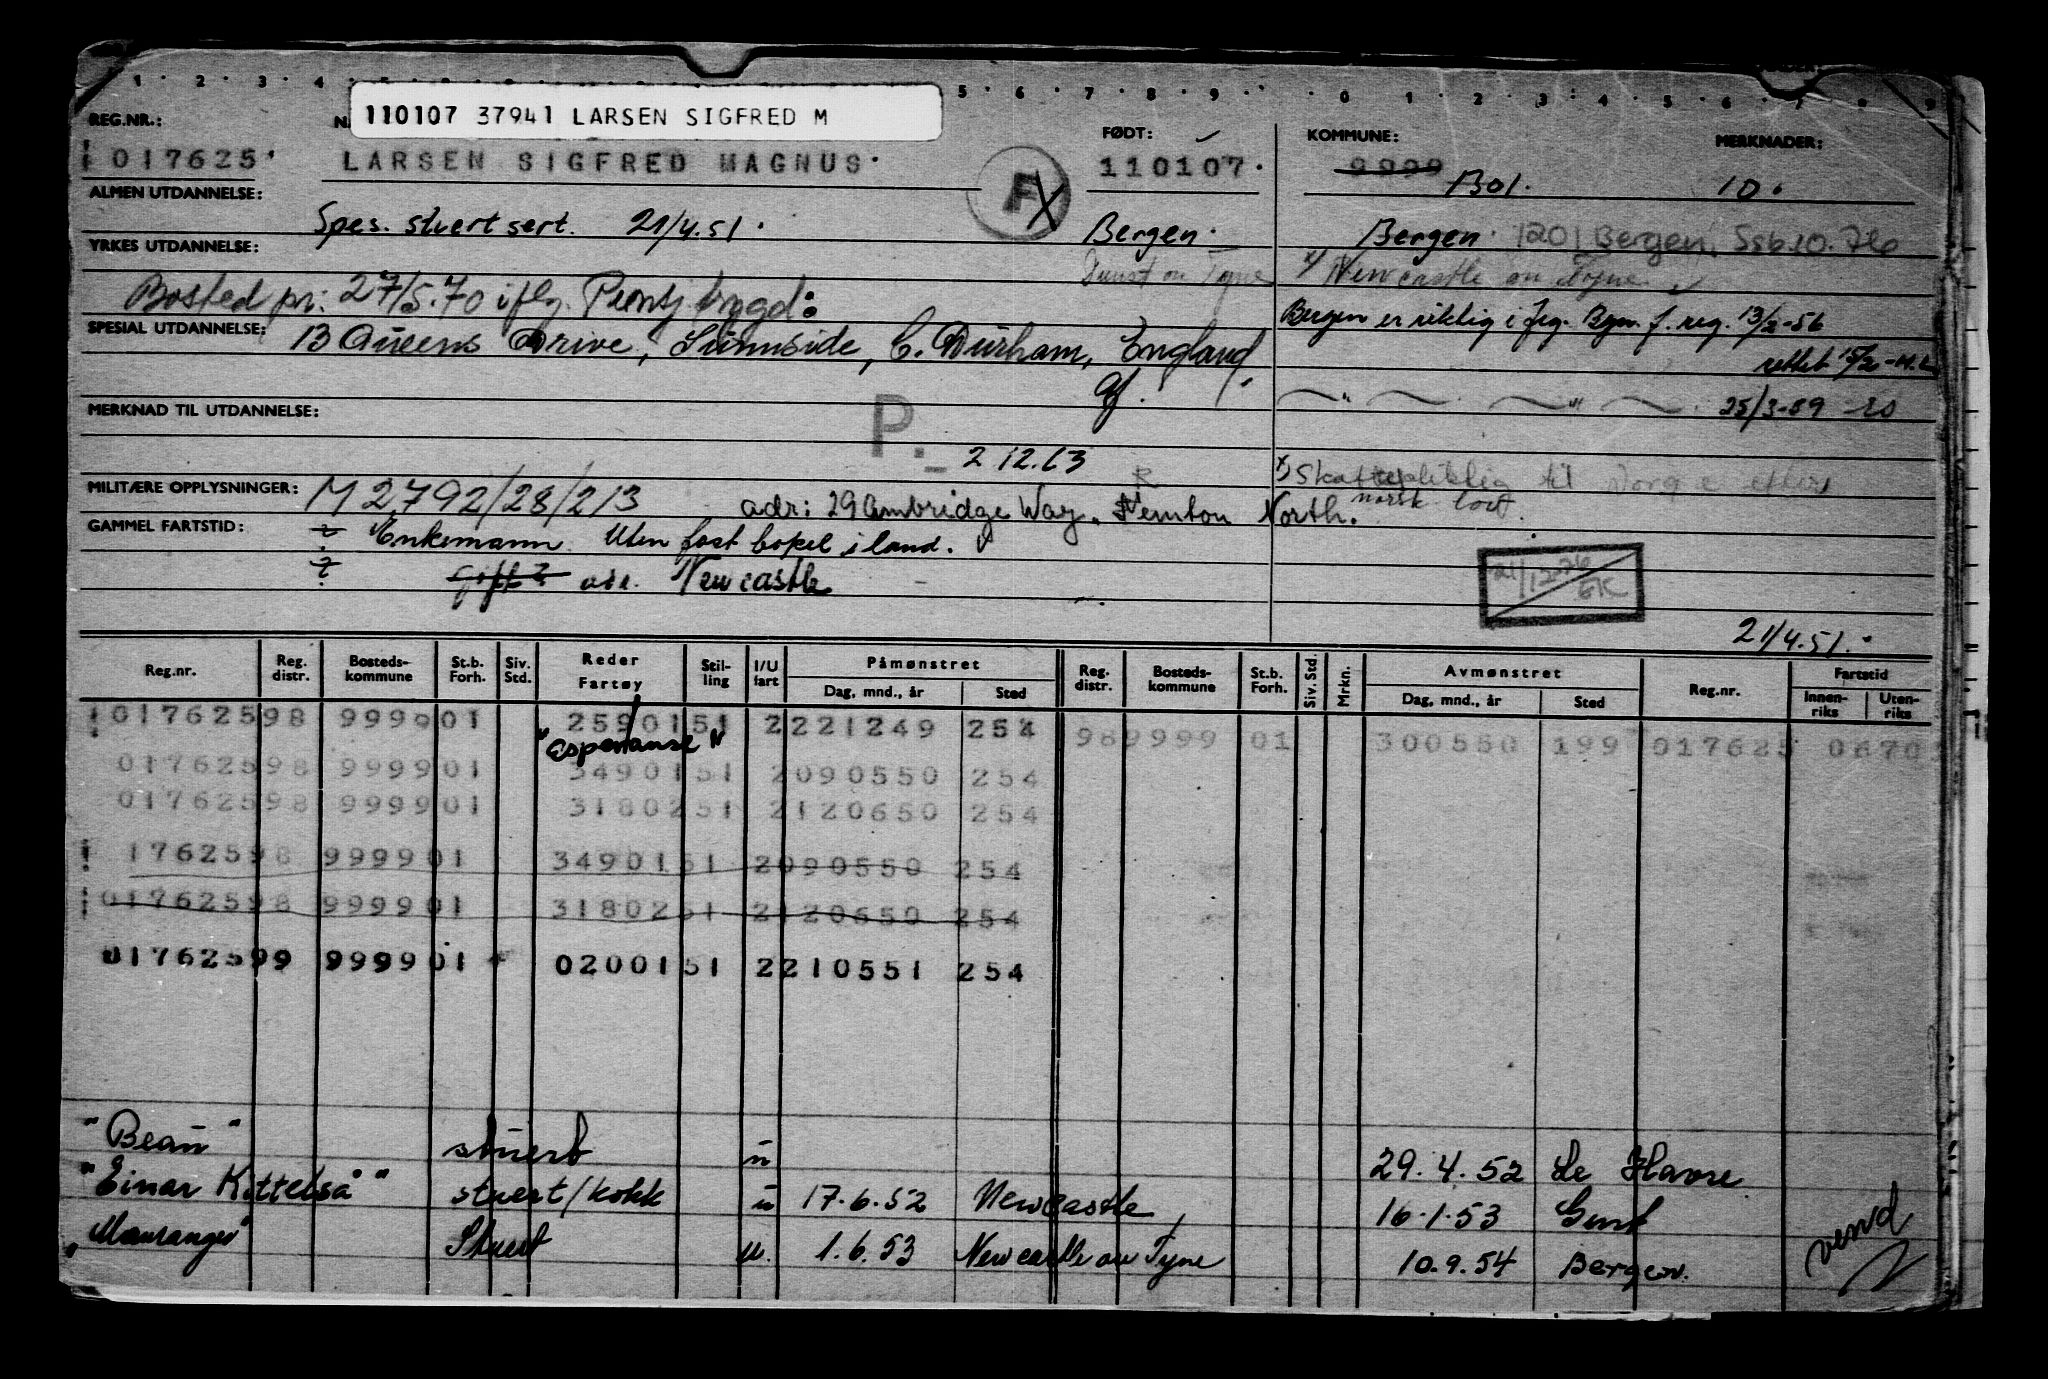 110107 37941 LARSEN SIGFRED M
REG.NR.: FØDT: KOMMUNE: MERKNADER:
017625 LARSEN SIGFRED MAGNUS. 110107. 9999 Bol. 10.
ALMEN UTDANNELSE: F
Spes. stuert sert. 21/4.51. Bergen. Bergen. 1201 Bergen, Ssb.10.76
YRKES UTDANNELSE: on Tyne x) Newcastle on Tyne
Bosted pr: 27/5.70 iflg. Pensj.trygd: Bergen er riktig i flg. Bgn. f. reg. 13/2-56
SPESIAL UTDANNELSE: 13 Queens Drive, Sunnside, C. Durham, England. rettet 15/2-
MERKNAD TIL UTDANNELSE: P. 25/3-59
2 12.63
MILITÆRE OPPLYSNINGER: M 2792/28/213 adr: 29 Ambridge Way, North. x) Skattepliktig til Norge etter norsk lov.
GAMMEL FARTSTID: ? Enkemann. Uten fast bopel i land.
? gift? adr. Newcastle
21/12-76 EK
21/4.51.
Reg.nr. Reg. distr. Bosteds-kommune St.b. Forh. Siv. Std. Reder Fartøy Stil-ling I/U fart Påmønstret Dag, mnd., år Sted Reg. distr. Bosteds-kommune St.b. Forh. Siv. Std. Mrkn. Avmønstret Dag, mnd., år Sted Reg.nr. Fartstid Innen-riks Uten-riks
01762598 999901 2590151 2221249 254 989999 01 300550 199 017625 0670
"Esperanse"
01762598 999901 3490151 2090550 254
01762598 999901 3180251 2120650 254
1762598 999901 3490151 2090550 254
01762598 999901 3180251 2120650 254
01762599 999901 0200151 2210551 254
"Beau" stuert u 29.4.52 Le Havre
"Einar Kittelså" stuert/kokk u 17.6.52 Newcastle 16.1.53 Gent
"Mauranger" Stuert u. 1.6.53 Newcastle on Tyne 10.9.54 Bergen.
vend